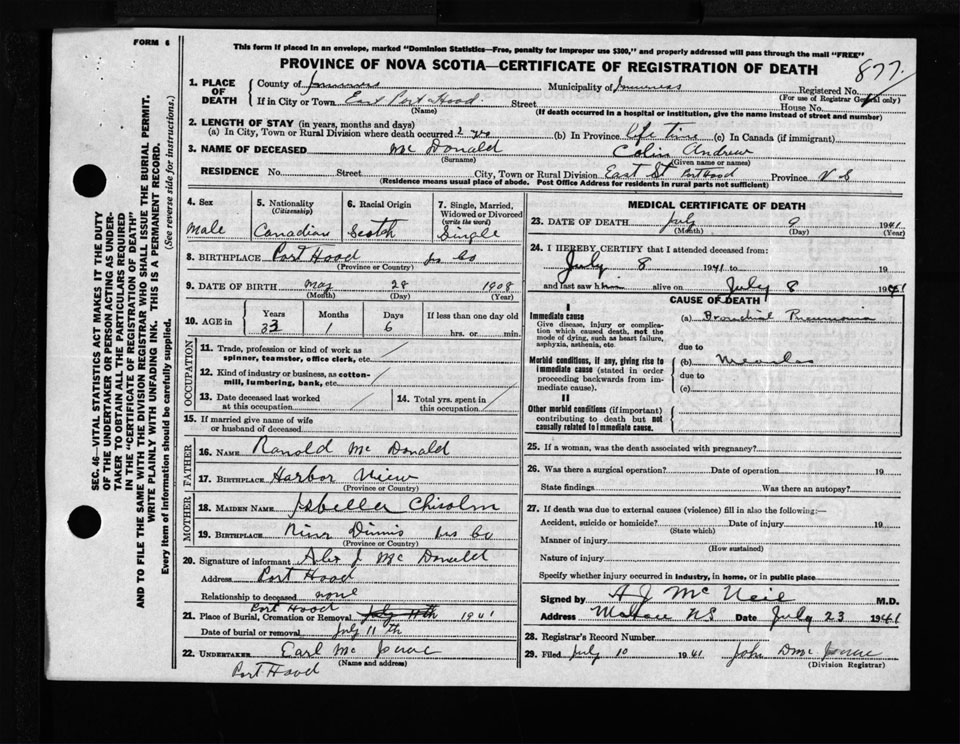 FORM 6
This form if placed in an envelope, marked "Dominion Statistics—Free, penalty for improper use $300," and properly addressed will pass through the mail "FREE"
PROVINCE OF NOVA SCOTIA—CERTIFICATE OF REGISTRATION OF DEATH
877.
1. PLACE OF DEATH
County of Inverness Municipality of Inverness Registered No.
(For use of Registrar General only)
If in City or Town East Port Hood. Street House No.
(Name) (If death occurred in a hospital or institution, give the name instead of street and number)
2. LENGTH OF STAY (in years, months and days)
(a) In City, Town or Rural Division where death occurred 2 yrs (b) In Province Life Time (c) In Canada (if immigrant)
3. NAME OF DECEASED Mc Donald Colin Andrew
(Surname) (Given name or names)
RESIDENCE No. Street City, Town or Rural Division East St Port Hood Province N S
(Residence means usual place of abode. Post Office Address for residents in rural parts not sufficient)
4. Sex
Male
5. Nationality (Citizenship)
Canadian
6. Racial Origin
Scotch
7. Single, Married, Widowed or Divorced (write the word)
Single
8. BIRTHPLACE Port Hood Co
(Province or Country)
9. DATE OF BIRTH May 28 1908
(Month) (Day) (Year)
10. AGE in Years Months Days If less than one day old
33 1 6 hrs. or min.
OCCUPATION
11. Trade, profession or kind of work as spinner, teamster, office clerk, etc.
12. Kind of industry or business, as cotton-mill, lumbering, bank, etc.
13. Date deceased last worked at this occupation
14. Total yrs. spent in this occupation
15. If married give name of wife or husband of deceased
FATHER
16. NAME Ranold Mc Donald
17. BIRTHPLACE Harbor View
(Province or Country)
MOTHER
18. MAIDEN NAME Isbella Chisolm
19. BIRTHPLACE River Dinnis Co
(Province or Country)
20. Signature of informant Alex J Mc Donald
Address Port Hood
Relationship to deceased none
21. Place of Burial, Cremation or Removal Port Hood July 11th 1941
Date of burial or removal July 11 th
22. UNDERTAKER Earl Mc
(Name and address)
Port Hood
MEDICAL CERTIFICATE OF DEATH
23. DATE OF DEATH July 9 1941
(Month) (Day) (Year)
24. I HEREBY CERTIFY that I attended deceased from:
July 8 1941 to 19
and last saw him alive on July 8 1941
CAUSE OF DEATH
I
Immediate cause
Give disease, injury or complication which caused death, not the mode of dying, such as heart failure, asphyxia, asthenia, etc.
(a) Bronchial Pneumonia
due to
Morbid conditions, if any, giving rise to immediate cause (stated in order proceeding backwards from immediate cause).
(b) Measles
due to
(c)
II
Other morbid conditions (if important) contributing to death but not causally related to immediate cause.
25. If a woman, was the death associated with pregnancy?
26. Was there a surgical operation? Date of operation 19
State findings Was there an autopsy?
27. If death was due to external causes (violence) fill in also the following:—
Accident, suicide or homicide? Date of injury 19
(State which)
Manner of injury
(How sustained)
Nature of injury
Specify whether injury occurred in industry, in home, or in public place
Signed by A J Mc Neil M.D.
Address Mabou N S Date July 23 1941
28. Registrar's Record Number
29. Filed July 10 1941 John D Mc
(Division Registrar)
SEC. 46—VITAL STATISTICS ACT MAKES IT THE DUTY
OF THE UNDERTAKER OR PERSON ACTING AS UNDER-
TAKER TO OBTAIN ALL THE PARTICULARS REQUIRED
IN THE "CERTIFICATE OF REGISTRATION OF DEATH"
AND TO FILE THE SAME WITH THE DIVISION REGISTRAR WHO SHALL ISSUE THE BURIAL PERMIT.
WRITE PLAINLY WITH UNFADING INK. THIS IS A PERMANENT RECORD.
Every item of information should be carefully supplied. (See reverse side for instructions.)